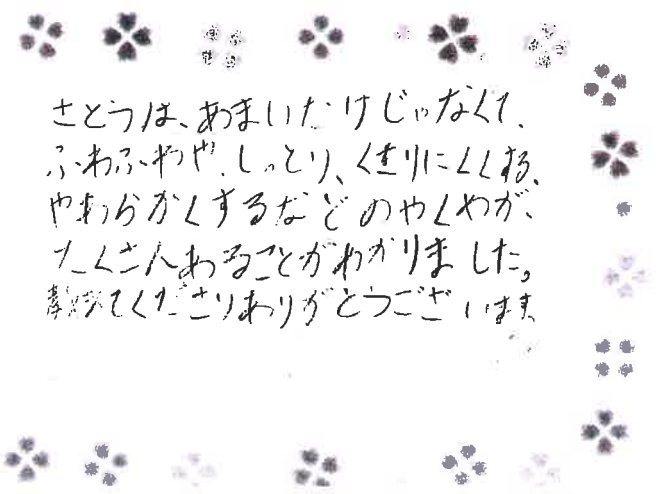 さとうは、あまいだけじゃなくて、
ふわふわや、しっとり、くさりにくくする、
やわらかくするなどのやくめが、
たくさんあることがわかりました。
教えてくださりありがとうございます